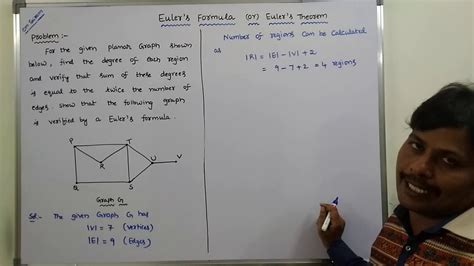 Euler's Formula (or) Euler's Theorem
Problem :-
For the given planar Graph shown
below, find the degree of each region
and verify that sum of these degrees
is equal to the twice the number of
edges. Show that the following graph
is verified by a Euler's formula.
P
T
R
U
V
Q
S
Graph G
Sol:- The given Graph G has
|V| = 7 (Vertices)
|E| = 9 (Edges)
Number of regions can be calculated
as
|R| = |E| - |V| + 2
= 9 - 7 + 2 = 4 regions